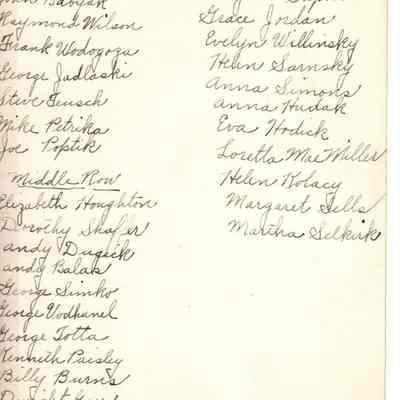 Raymond Wilson
Frank Wodogoza
George Jadlaski
Steve Teusch
Mike Petrika
Joe Poptik
Middle Row
Elizabeth Houghton
Dorothy Shaffer
Andy Dugick
Andy Balas
George Simko
George Vodhanel
George Totta
Kenneth Paisley
Billy Burns
Grace Jordan
Evelyn Willinsky
Helen Sarnsky
Anna Simons
Anna Hudak
Eva Hodick
Loretta Mae Miller
Helen Kolacy
Margaret Sells
Martha Selkirk